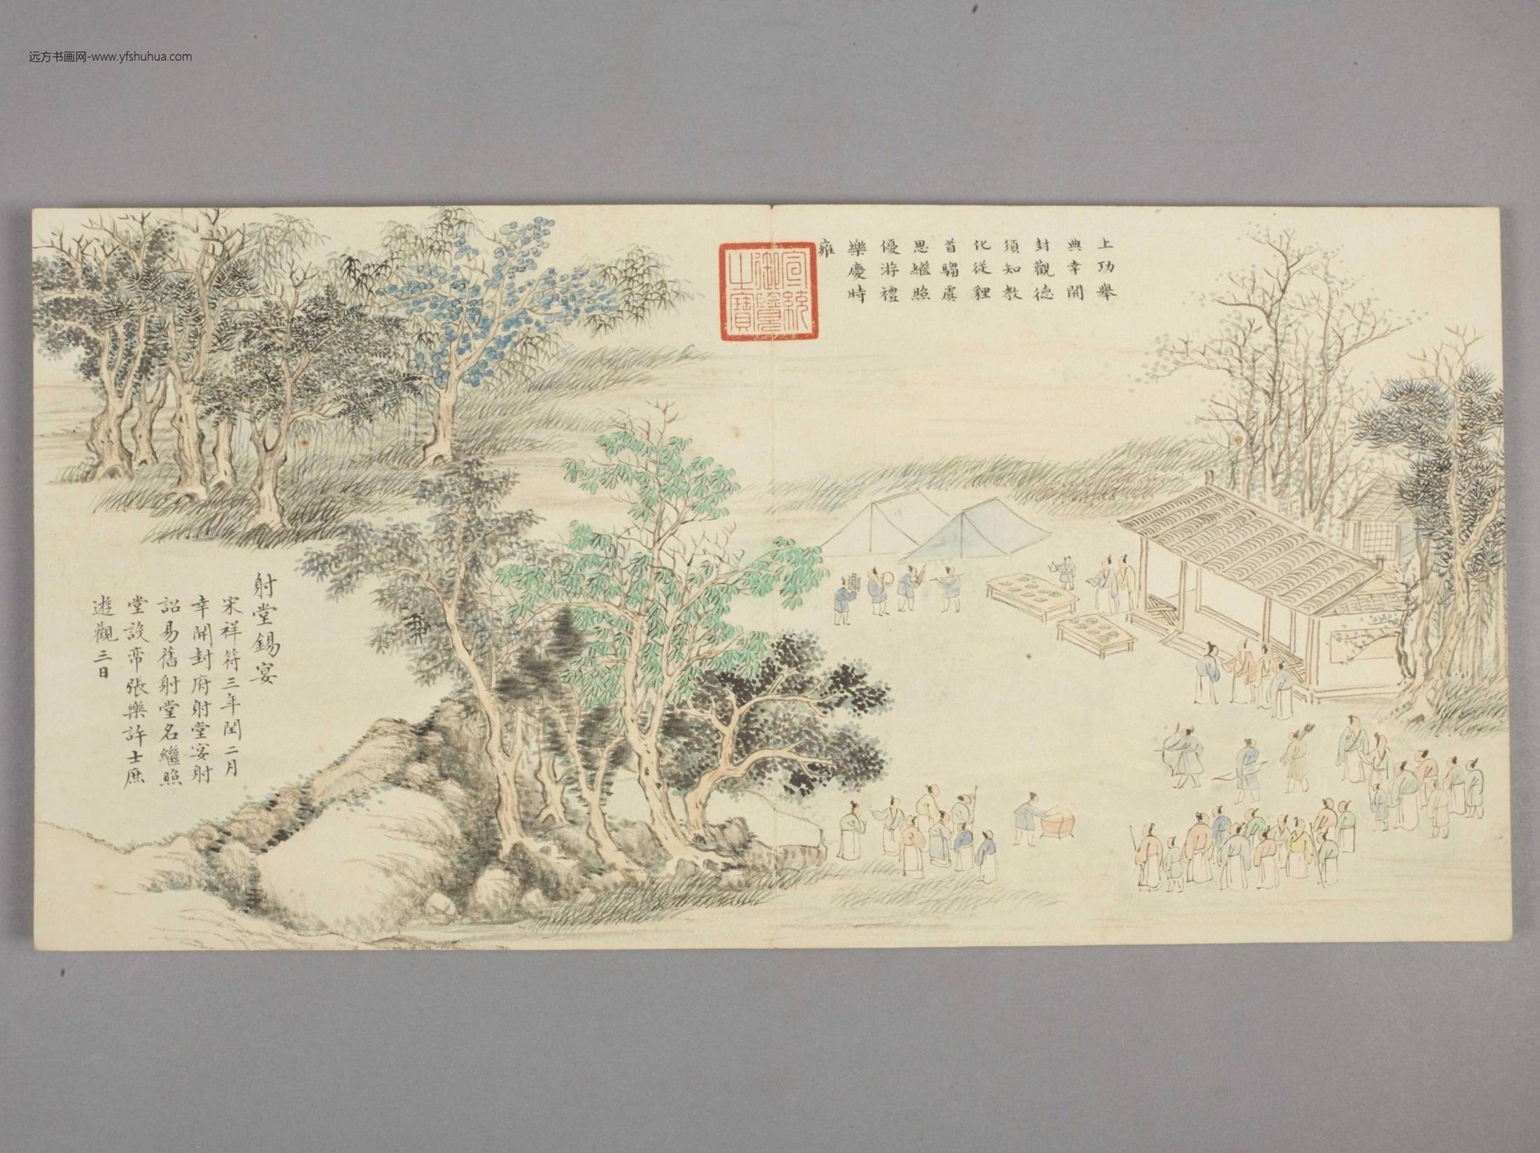 远方书画网-www.yfshuhua.com
上功舉
典幸開
封觀德
須知教
化從貍
首騶虞
思繼照
優游禮
樂慶時
雍
宣統
御覽
之寶
射堂錫宴
宋祥符三年閏二月
幸開封府射堂宴射
詔易舊射堂名繼照
堂設帟張樂許士庶
遊觀三日